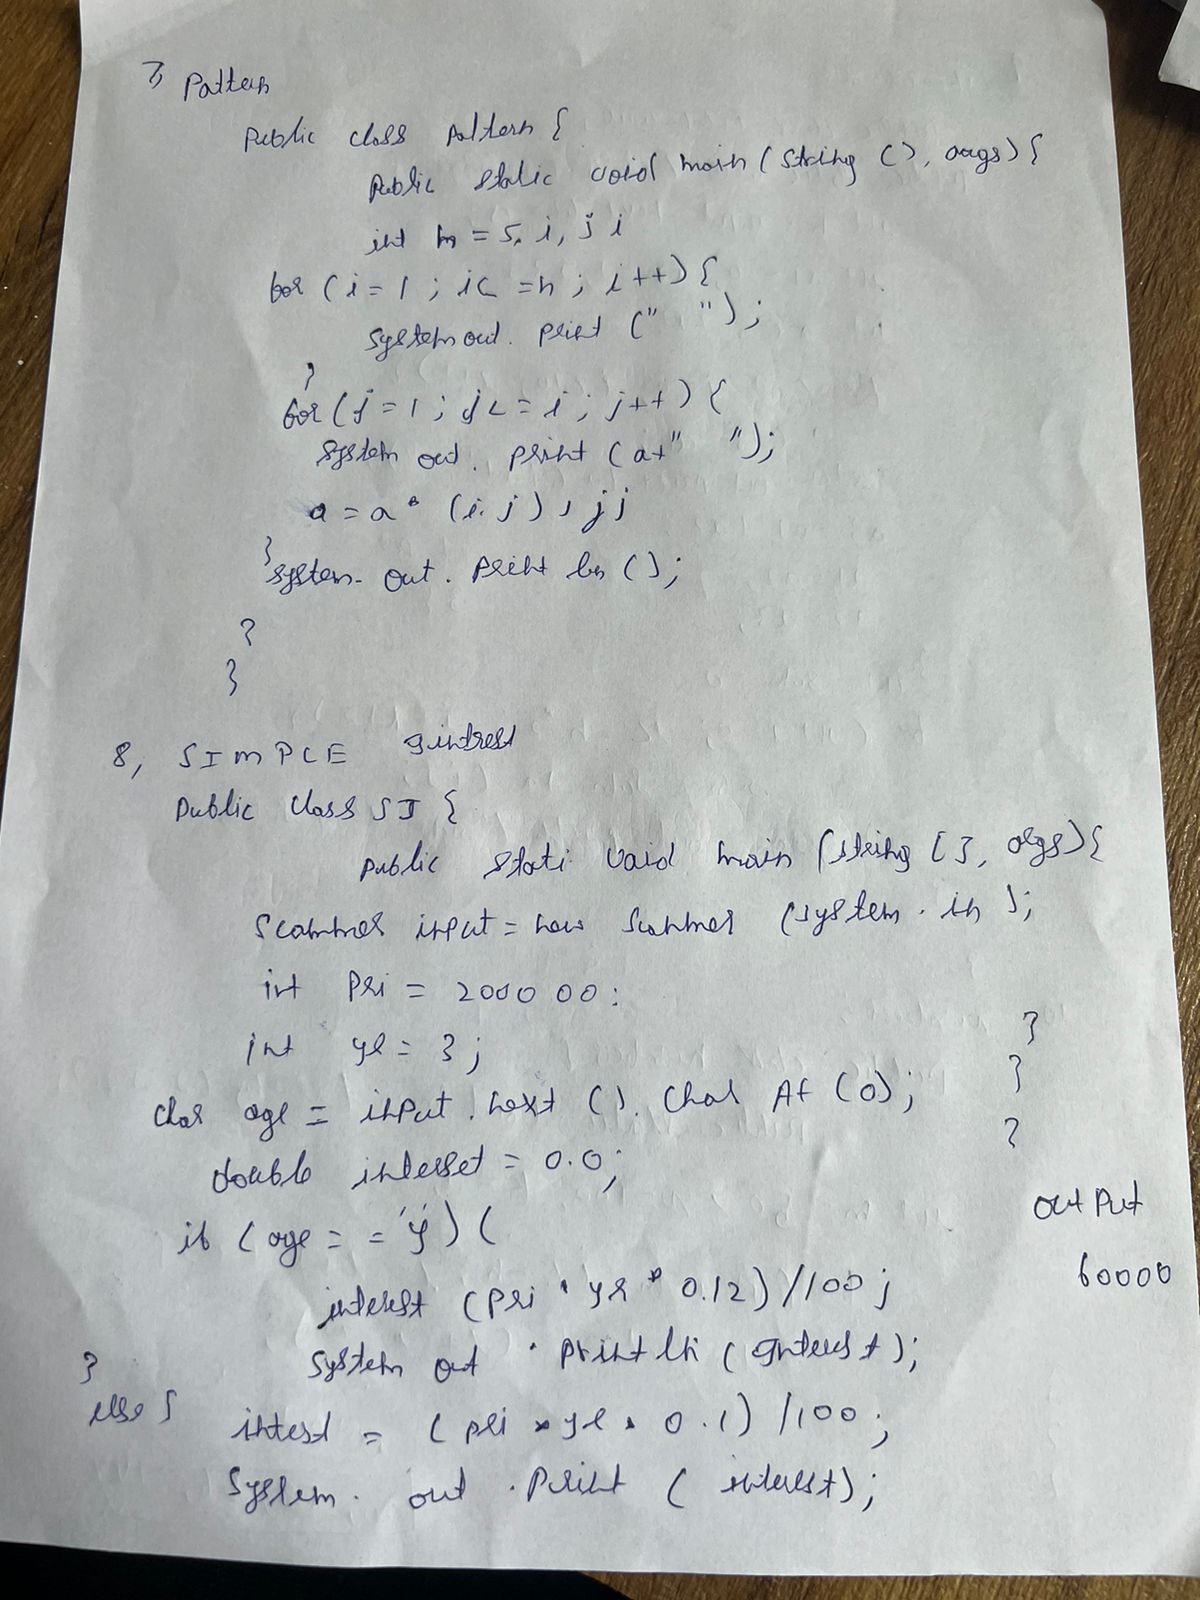 7 Pattern
Public class pattern {
Public static void main (string (), args) {
int n = 5, i, j i
for (i = 1 ; i < = n ; i ++) {
system out. print (" ");
}
for (j = 1 ; j < = i ; j ++) {
system out. print (a+" ");
a = a * (i. j) , j j
}
system. out. print ln ();
}
}
8, SIMPLE intrest
Public class SI {
public stati void main (string [ ], args) {
scanner input = new scanner (system . in );
int pri = 2000 00 :
int yr = 3 ;
char age = input . next (). Char At (0);
double interset = 0.0;
if (age = = 'y') (
interest (pri * yr * 0.12) /100 ;
system out . println (interest);
}
else {
intest = (pri * yr * 0.1) /100 ;
System. out . Print ( interest);
}
}
}
out Put
60000